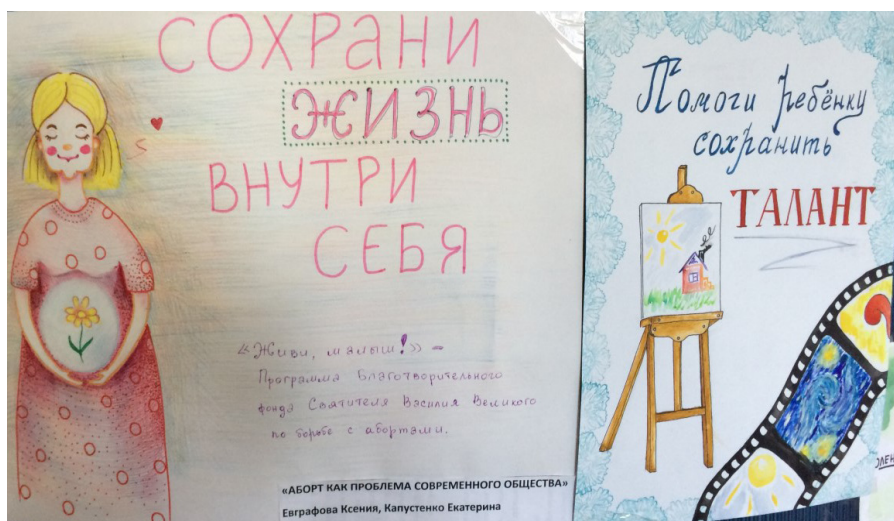 СОХРАНИ
ЖИЗНЬ
ВНУТРИ
СЕБЯ
«Живи, малыш!» –
Программа Благотворительного
фонда Святителя Василия Великого
по борьбе с абортами.
«АБОРТ КАК ПРОБЛЕМА СОВРЕМЕННОГО ОБЩЕСТВА»
Евграфова Ксения, Капустенко Екатерина
Помоги ребёнку
сохранить
ТАЛАНТ